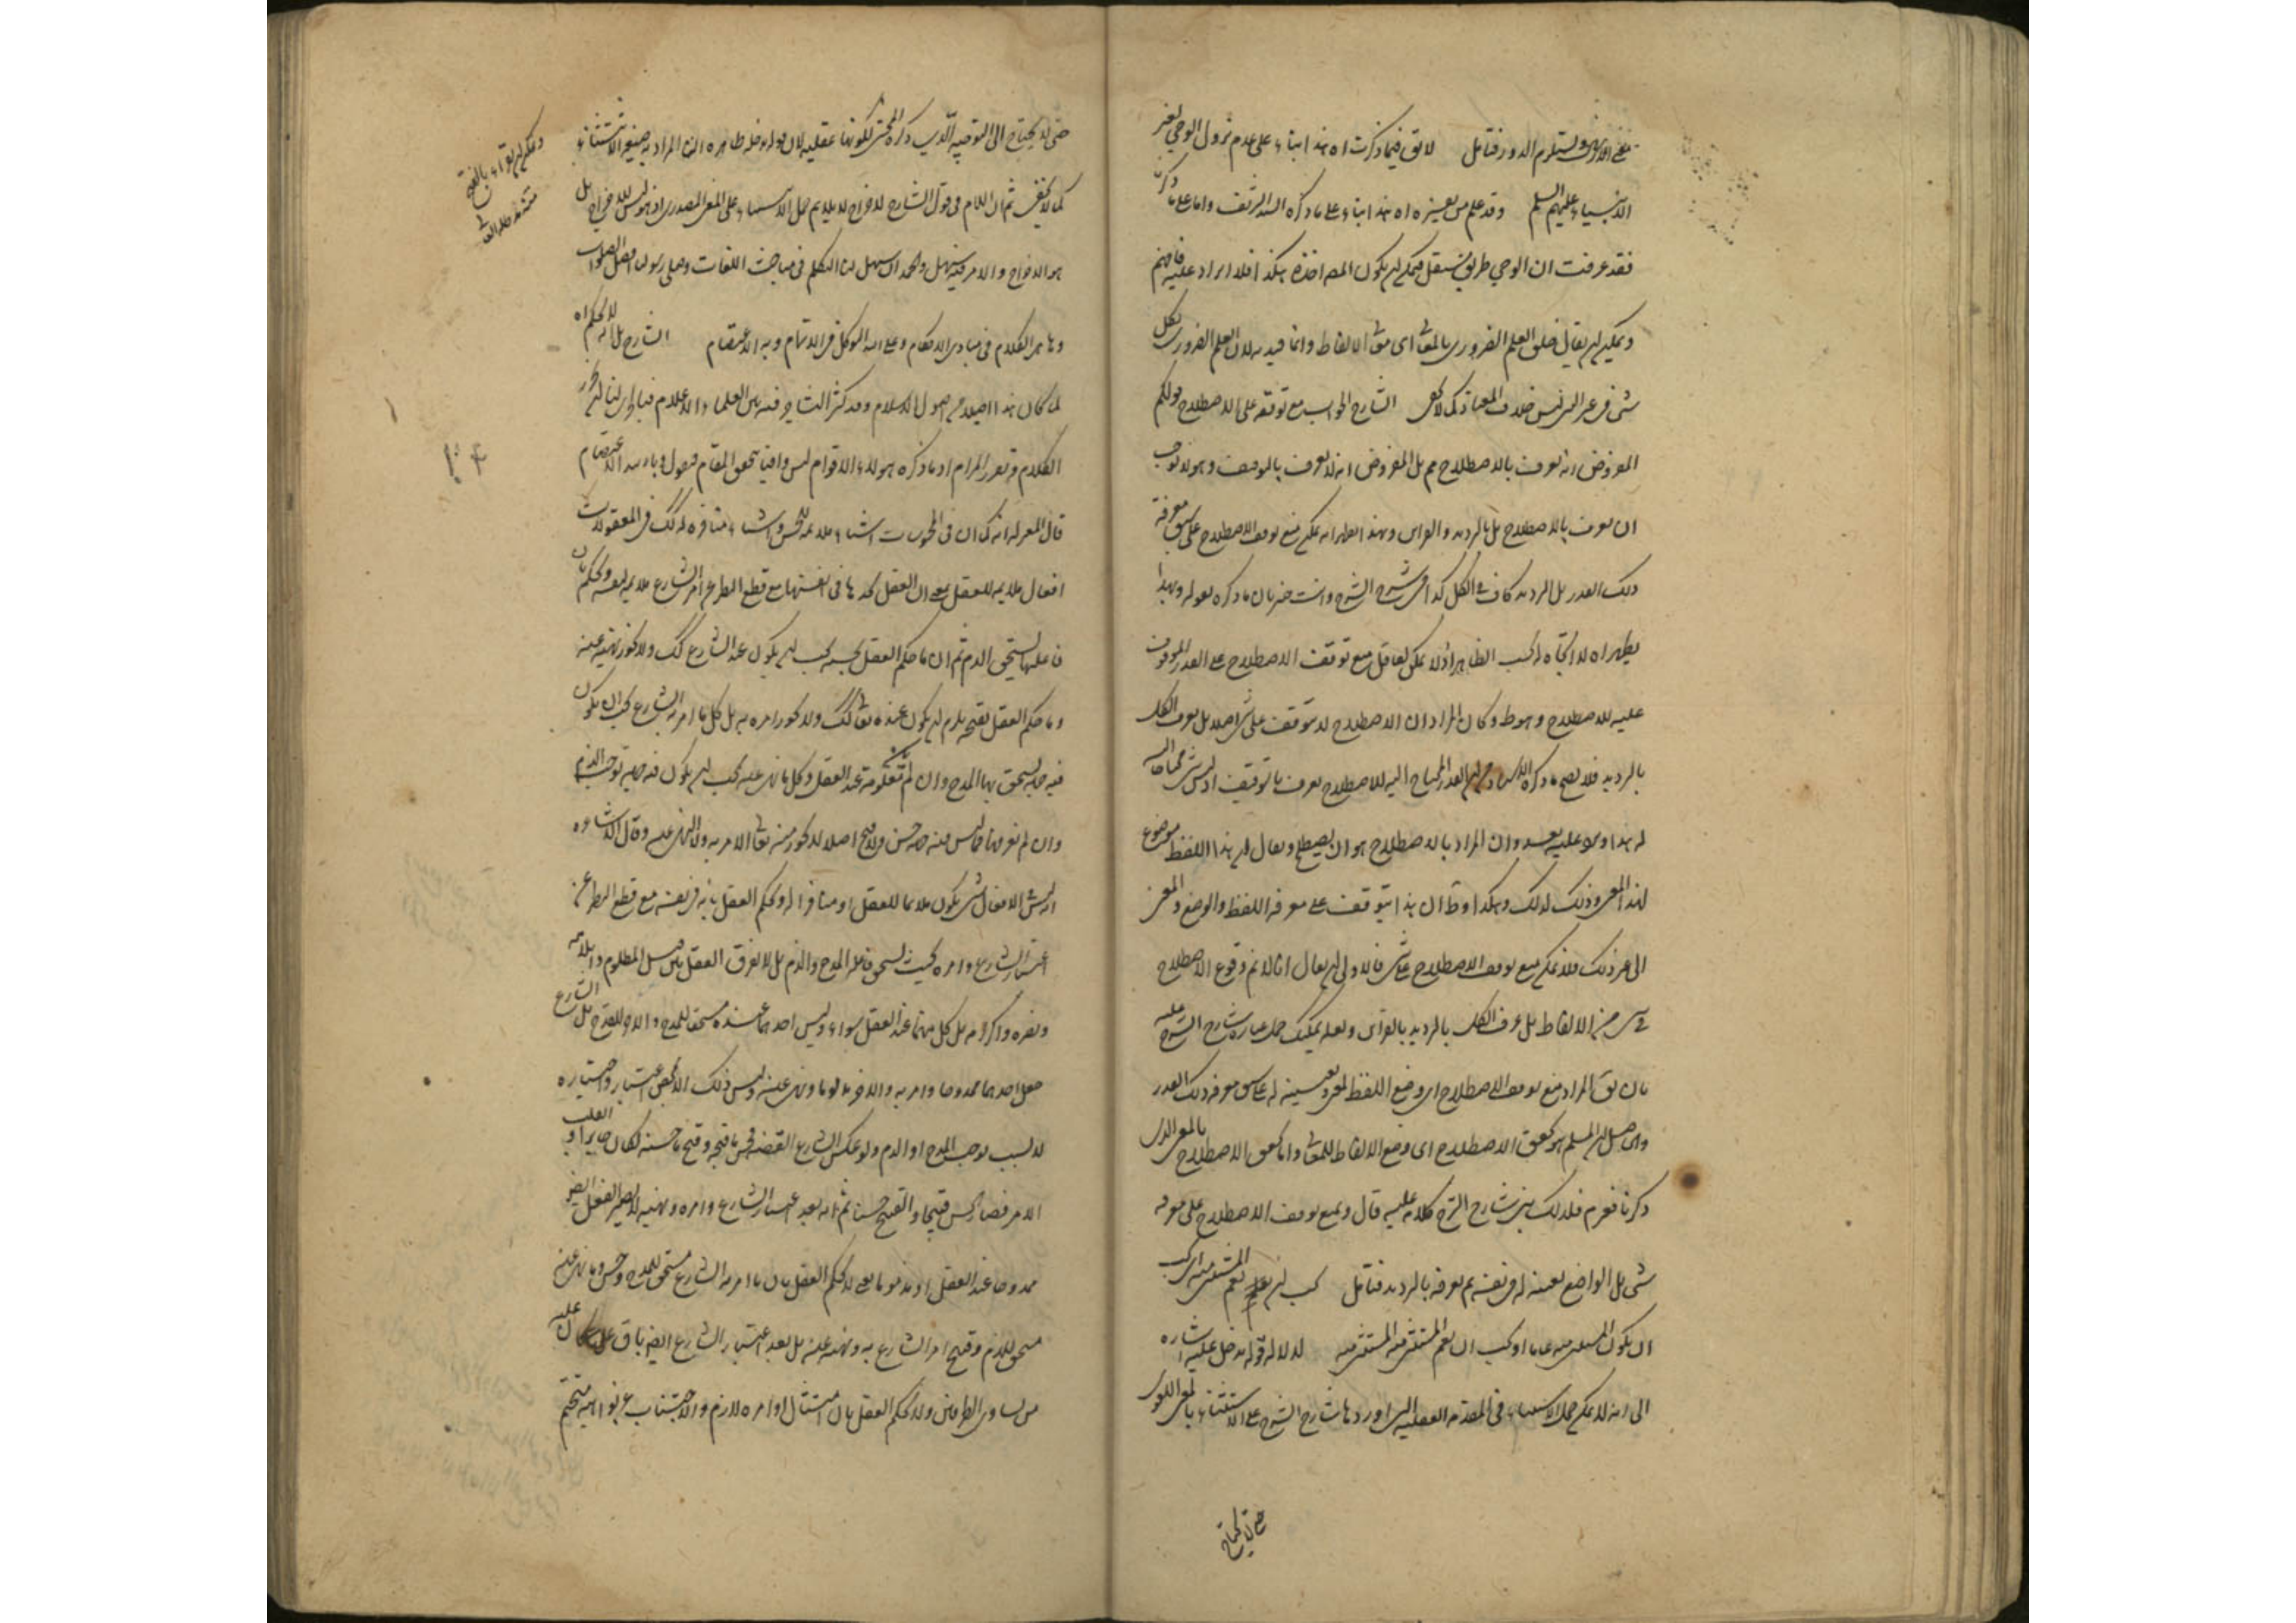 ويستلزم الدور فتأمل لا يق فيما ذكرت اه هذا ابتناء على عدم نزول الوحي لغير
الانبياء عليهم السلم وقد علم من تعبيره اه هذا ابتناء على ما ذكره السيد الشريف واما على ما ذكرت
فقد عرفت ان الوحي طريق مستقل فيمكن ان يكون المص اخذه هكذا فلا ايراد عليه فافهم
ويمكن ان يقال خلق العلم الضروري بالمعاني اى معانى الالفاظ وانما قيد به لان العلم الضروري بكل
شئ في غير البرئيس خلاف المعتاد كما لا يخفى الشارح الجواب مع توقفه على الاصطلاح قولكم
المفروض انه يعرف بالاصطلاح مم بل المفروض انه لا يعرف بالتوقيف وهو لا يوجب
ان يعرف بالاصطلاح بل بالترديد والقراين وبهذا ظهر انه يمكن منع توقف الاصطلاح على سبق معرفة
ذلك القدر بل الترديد كاف في الكل كذا في شرح الشرح وانت خبير بان ما ذكره بقوله وبهذا
يظهر اه لا اتجاه له بحسب الظاهر اذ لا يمكن لعاقل منع توقف الاصطلاح على القدر الموقوف
عليه للاصطلاح وهو ظ وكان المراد ان الاصطلاح لا يتوقف على شئ اصلا بل يعرف الكل
بالترديد فلا يصح ما ذكره الاستاد من ان القدر المحتاج اليه للاصطلاح يعرف بالتوقيف اذ ليس شئ محتاجا اليه
له هذا ويرد عليه بعد وان المراد بالاصطلاح هو ان يصطلح ويقال ان هذا اللفظ موضوع
لهذا المعنى وذلك لذلك وهكذا وظ ان هذا يتوقف على معرفة اللفظ والوضع والمعنى
الى غير ذلك فلا يمكن منع توقف الاصطلاح على شئ فالاولى ان يقال انا لا نم وقوع الاصطلاح
في شئ من الالفاظ بل عرف الكل بالترديد بالقراين ولعله يمكنك حمل عبارة شارح الشرح عليه
بان يق المراد منع توقف الاصطلاح اى وضع اللفظ لمعنى وتعيينه له على سبق معرفة ذلك القدر
والحاصل ان المسلم هو تحقق الاصطلاح اى وضع الالفاظ للمعانى واما تحقق الاصطلاح بالمعنى الذى
ذكرنا فغير م فلذلك بنى شارح الشرح كلامه عليه قال ويمنع توقف الاصطلاح على معرفة
شئ بل الواضع يعينه له في نفسه ثم يعرفه بالترديد فتأمل يجب ان يعلم يعم المستثنى منه اى يجب
ان يكون المستثنى منه عاما او يجب ان يعم المستثنى منه المستثنى منه لدلالة قوله يدخل عليه اشاره
الى انه لا يمكن حمل الاستثناء في المقدمة العقلية التى اوردها شارح الشرح على الاستثناء بالمعنى اللغوى
حتى لا يحتاج
حتى لا يحتاج الى التوجيه الذي ذكره المحشى لكونها عقلية لان قوله يدخله ظاهره ان المراد به صيغ الاستثناء
كما لا يخفى ثم ان اللام في قول الشارح لاخراج لا يلايم حمل الاستثناء على المعنى المصدرى اذ هو ليس للاخراج بل
هو الاخراج والامر فيه سهل والحمد لله ان سهل لنا التكلم في مباحث اللغات وصلى رسوله افضل الصلوات
وها هى الكلام في مبادى الاحكام وعلى الله التوكل في الاتمام وبه الاعتصام الشارح بل انه لا حكم اه
لما كان هذا اصلا من اصول الاسلام وقد كثر التشاجر فيه بين العلماء والاعلام فبالحرى لنا ان نحرر
الكلام في تقرير المرام اذ ما ذكره هؤلاء الاقوام ليس وافيا بتحقيق المقام فنقول وبالله الاعتصام
قال المعتزلة انه كما ان في المحسوسات اشياء ملايمة للحس واشياء منافره له كك في المعقولات
افعال ملايمة للعقل بمعنى ان العقل يجدها في انفسها مع قطع النظر عن امر الشارع ملايمه لنفسه ويحكم بان
فاعلها يستحق الذم ثم ان ما حكم العقل بحسنه يجب ان يكون عند الشارع كك ولا يجوز نهيه عنه
وما حكم العقل بقبحه يلزم ان يكون عنده تعالى كك ولا يجوز امره به بل كل ما امر به الشارع يجب ان يكون
فيه جهة يستحق بها المدح وان لم تكن معلومة عند العقل وكل ما نهى عنه يجب ان يكون فيه جهة توجب الذم
وان لم نعرفها فما ليس فيه جهة حسن وقبح اصلا لا يجوز منه تعالى الامر به ولا النهى عنه وقال الاشاعره
انه ليس في الافعال شئ يكون ملايما للعقل او منافرا له ويحكم العقل به في نفسه مع قطع النظر عن
اعتبار الشارع وامره بحيث يستحق فاعله المدح والذم بل لا يفرق العقل بين قتل المظلوم وايلامه
ونصره واكرامه بل كل منهما عند العقل سواء وليس احدهما عنده مستحقا للمدح والاخر للقدح بل الشارع
جعل احدهما ممدوحا وامر به والاخر مذموما ونهى عنه وليس ذلك الا بمحض اعتباره واختياره
لا لسبب يوجب المدح او الذم ولو عكس الشارع القضيه فحسن ما قبحه وقبح ما حسنه لكان جايزا وانقلب
الامر فصار الحسن قبيحا والقبيح حسنا ثم انه بعد اعتبار الشارع وامره ونهيه لا يصير الفعل ايضا
ممدوحا عند العقل او مذموما بمعنى لا يحكم العقل بان ما امر به الشارع مستحق للمدح وحسن وما نهى عنه
مستحق للذم وقبيح امر الشارع به ونهيه عنه بل بعد اعتبار الشارع ايضا باق على ما كان عليه
من تساوى الطرفين ولا يحكم العقل بان امتثال اوامره لازم والاجتناب عن نواهيه متحتم